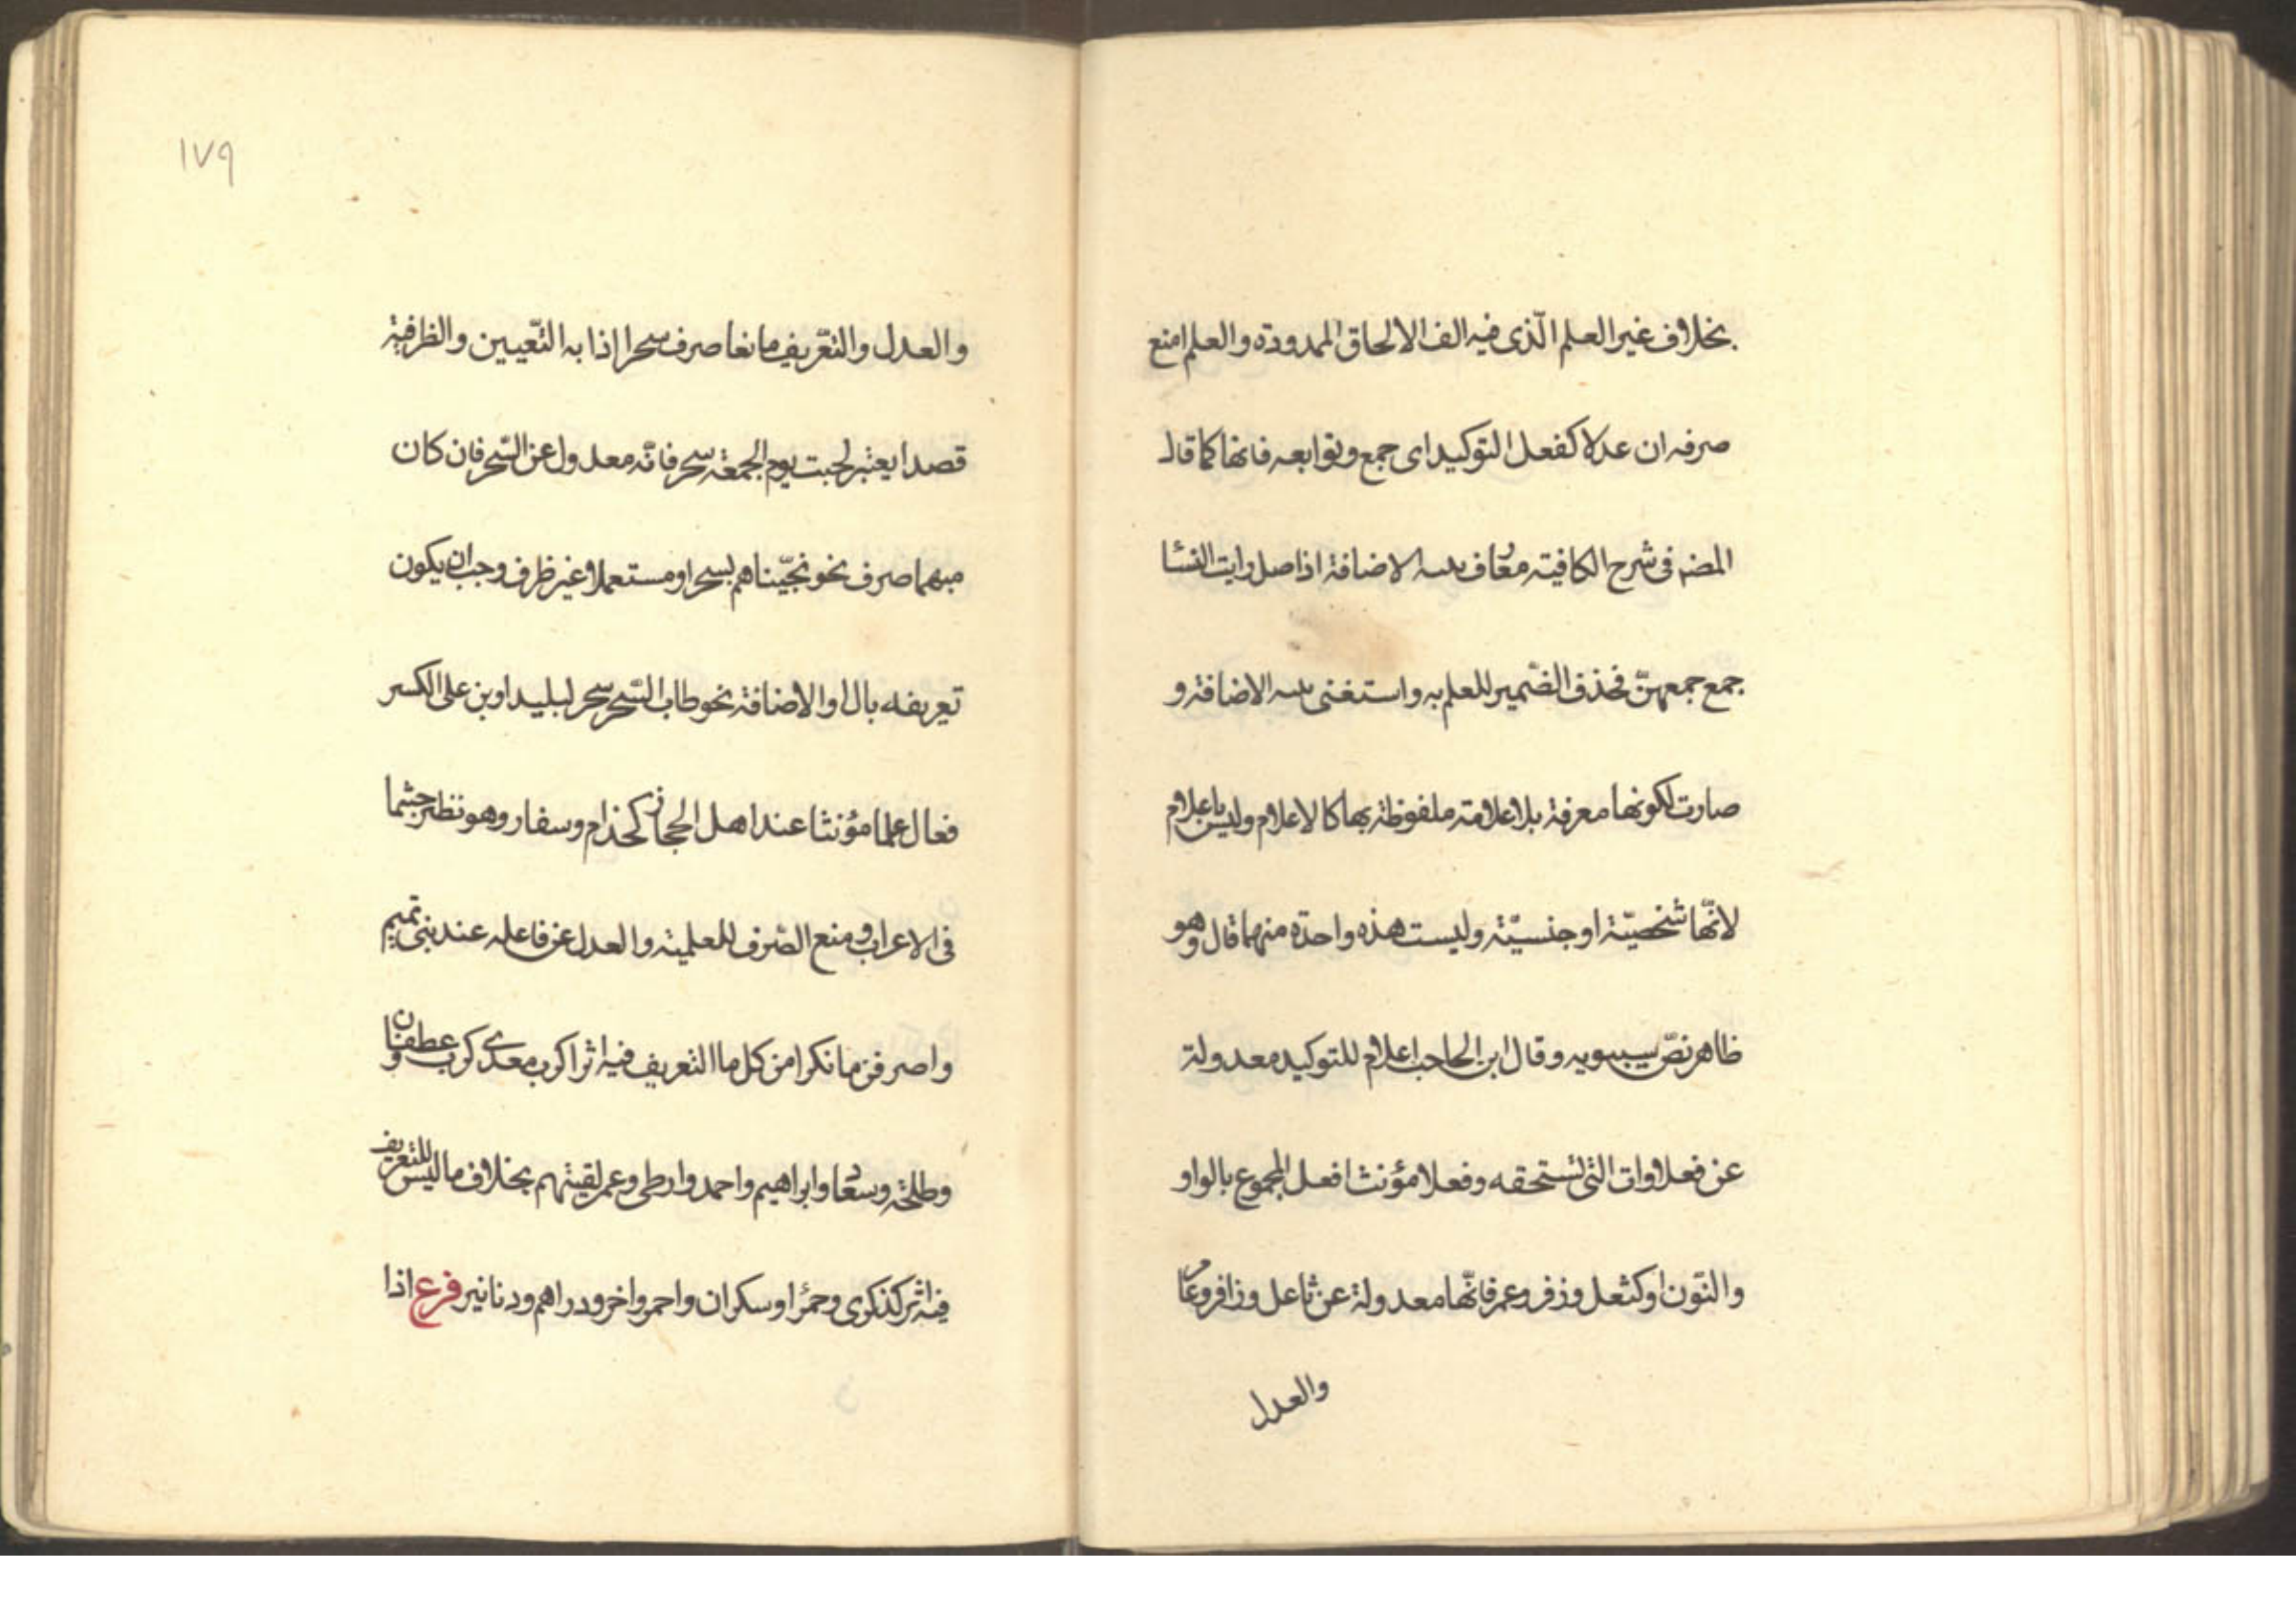 بخلاف غير العلم الّذى فيه الف الالحاق الممدودة والعلم امنع
صرفه ان عدلا كفعل التوكيد اى جمع وتوابعه فانها كما قال
المضہ فى شرح الكافية معارف بنيه الاضافة اذا صل رايت النسا
جمع جمعهنّ فحذف الضّمير للعلم به واستغنى بنيه الاضافة و
صارت لكونها معرفة بلا علامة ملفوظة بها كالاعلام وليس باعلام
لانّها شخصيّة او جنسيّة وليست هذه واحدة منهما قال وهو
ظاهر نصّ سيبويه وقال ابن الحاجب اعلام للتوكيد معدولة
عن فعلاوات التى تستحقه وفعلا مؤنث افعل المجموع بالواو
والنّون او كثعل وزفر وعمر فانّها معدولة عن ثاعل وزافر وعامر
والعدل
١٧٩
والعدل والتّعريف مانعا صرف سحر اذا به التّعيين والظرفية
قصدا يعتبر لجبت يوم الجمعة سحر فانّه معدول عن السّحر فان كان
مبهما صرف نحو نجّيناهم بسحر او مستعملا غير ظرف وجب ان يكون
تعريفه بال او الاضافة نحو طاب السّحر سحر لبليد او بن على الكسر
فعال علما مؤنثا عند اهل الحجاز كحذام وسفار وهو نظير جشما
فى الاعراب ومنع الصّرف للعلمية والعدل عن فاعله عند بنى تميم
واصرفن ما نكرا من كل ما التعريف فيه اثرا كرب معدى كرب وعطفان
وطلحة وسعاد وابراهيم واحمد وارطى وعمر لقيتهم بخلاف ما ليس للتعريف
فيه اثر كذكرى وحمرا وسكران واحمر واخر ودراهم ودنانير فرع اذا